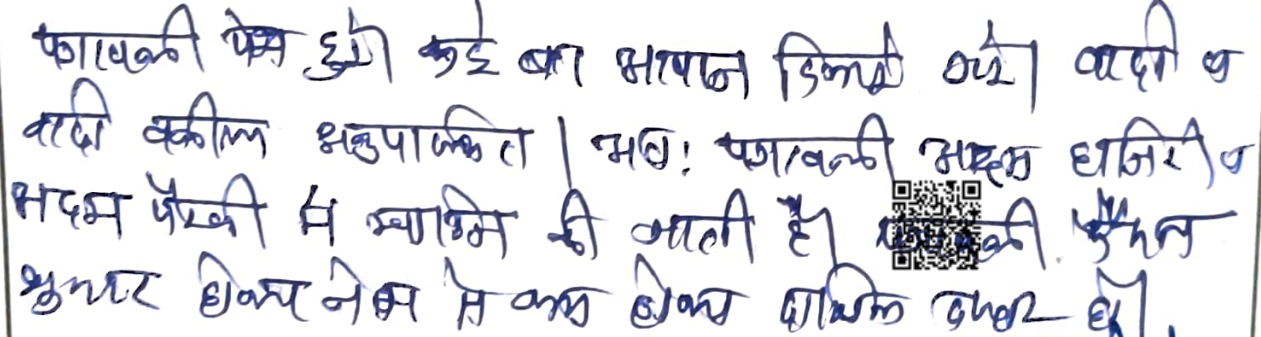 पत्रावली पेश हुई। कई बार आवाज दिलाई गई। वादी व
वादी वकील अनुपस्थित। अतः पत्रावली अदम हाजिरी व
अदम पैरवी में खारिज की जाती है। पत्रावली फैसल
शुमार होकर नम्बर से कम होकर दाखिल दफ्तर हो।